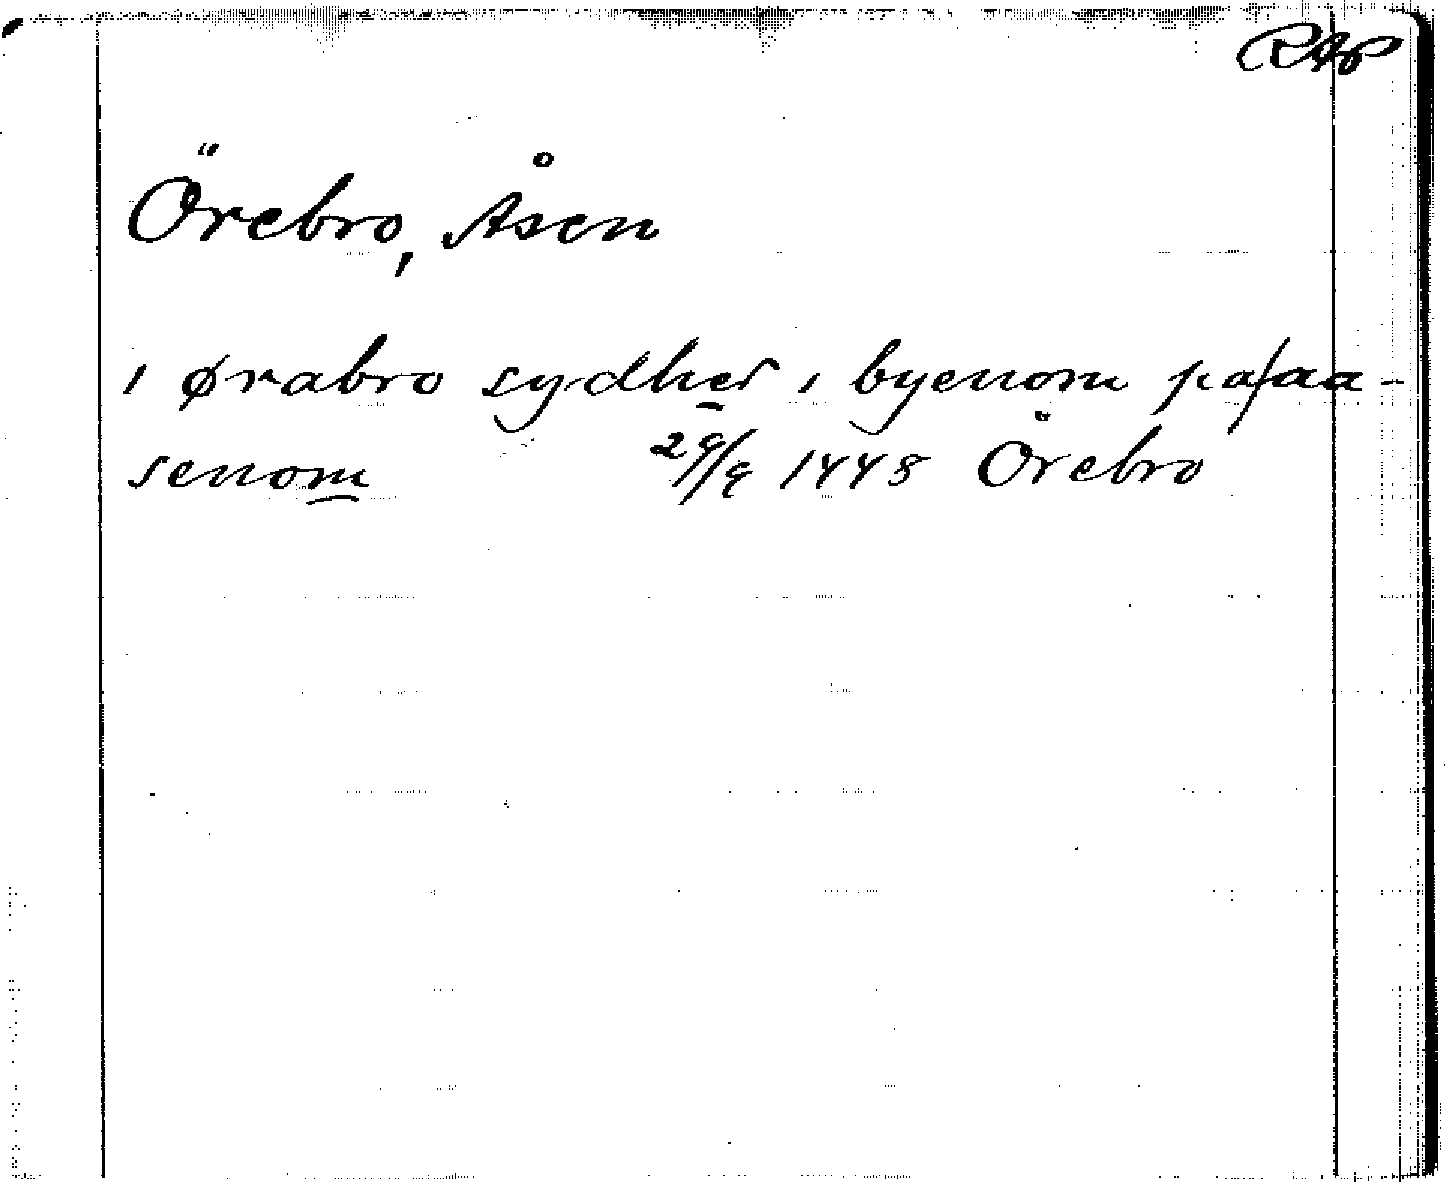 RAp
Örebro, Åsen
i ørabro sydher i byenom pa/aa-
senom 29/9 1448 Örebro